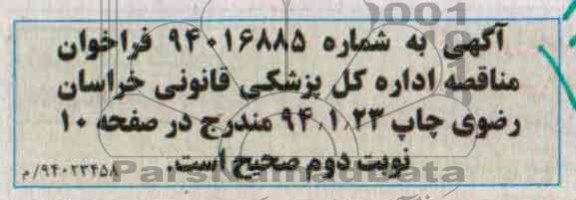 آگهی به شماره ۹۴۰۱۶۸۸۵ فراخوان
مناقصه اداره کل پزشکی قانونی خراسان
رضوی چاپ ۹۴.۱.۲۳ مندرج در صفحه ۱۰
نوبت دوم صحیح است.
۹۴۰۲۳۴۵۸/م
ParsNamadData